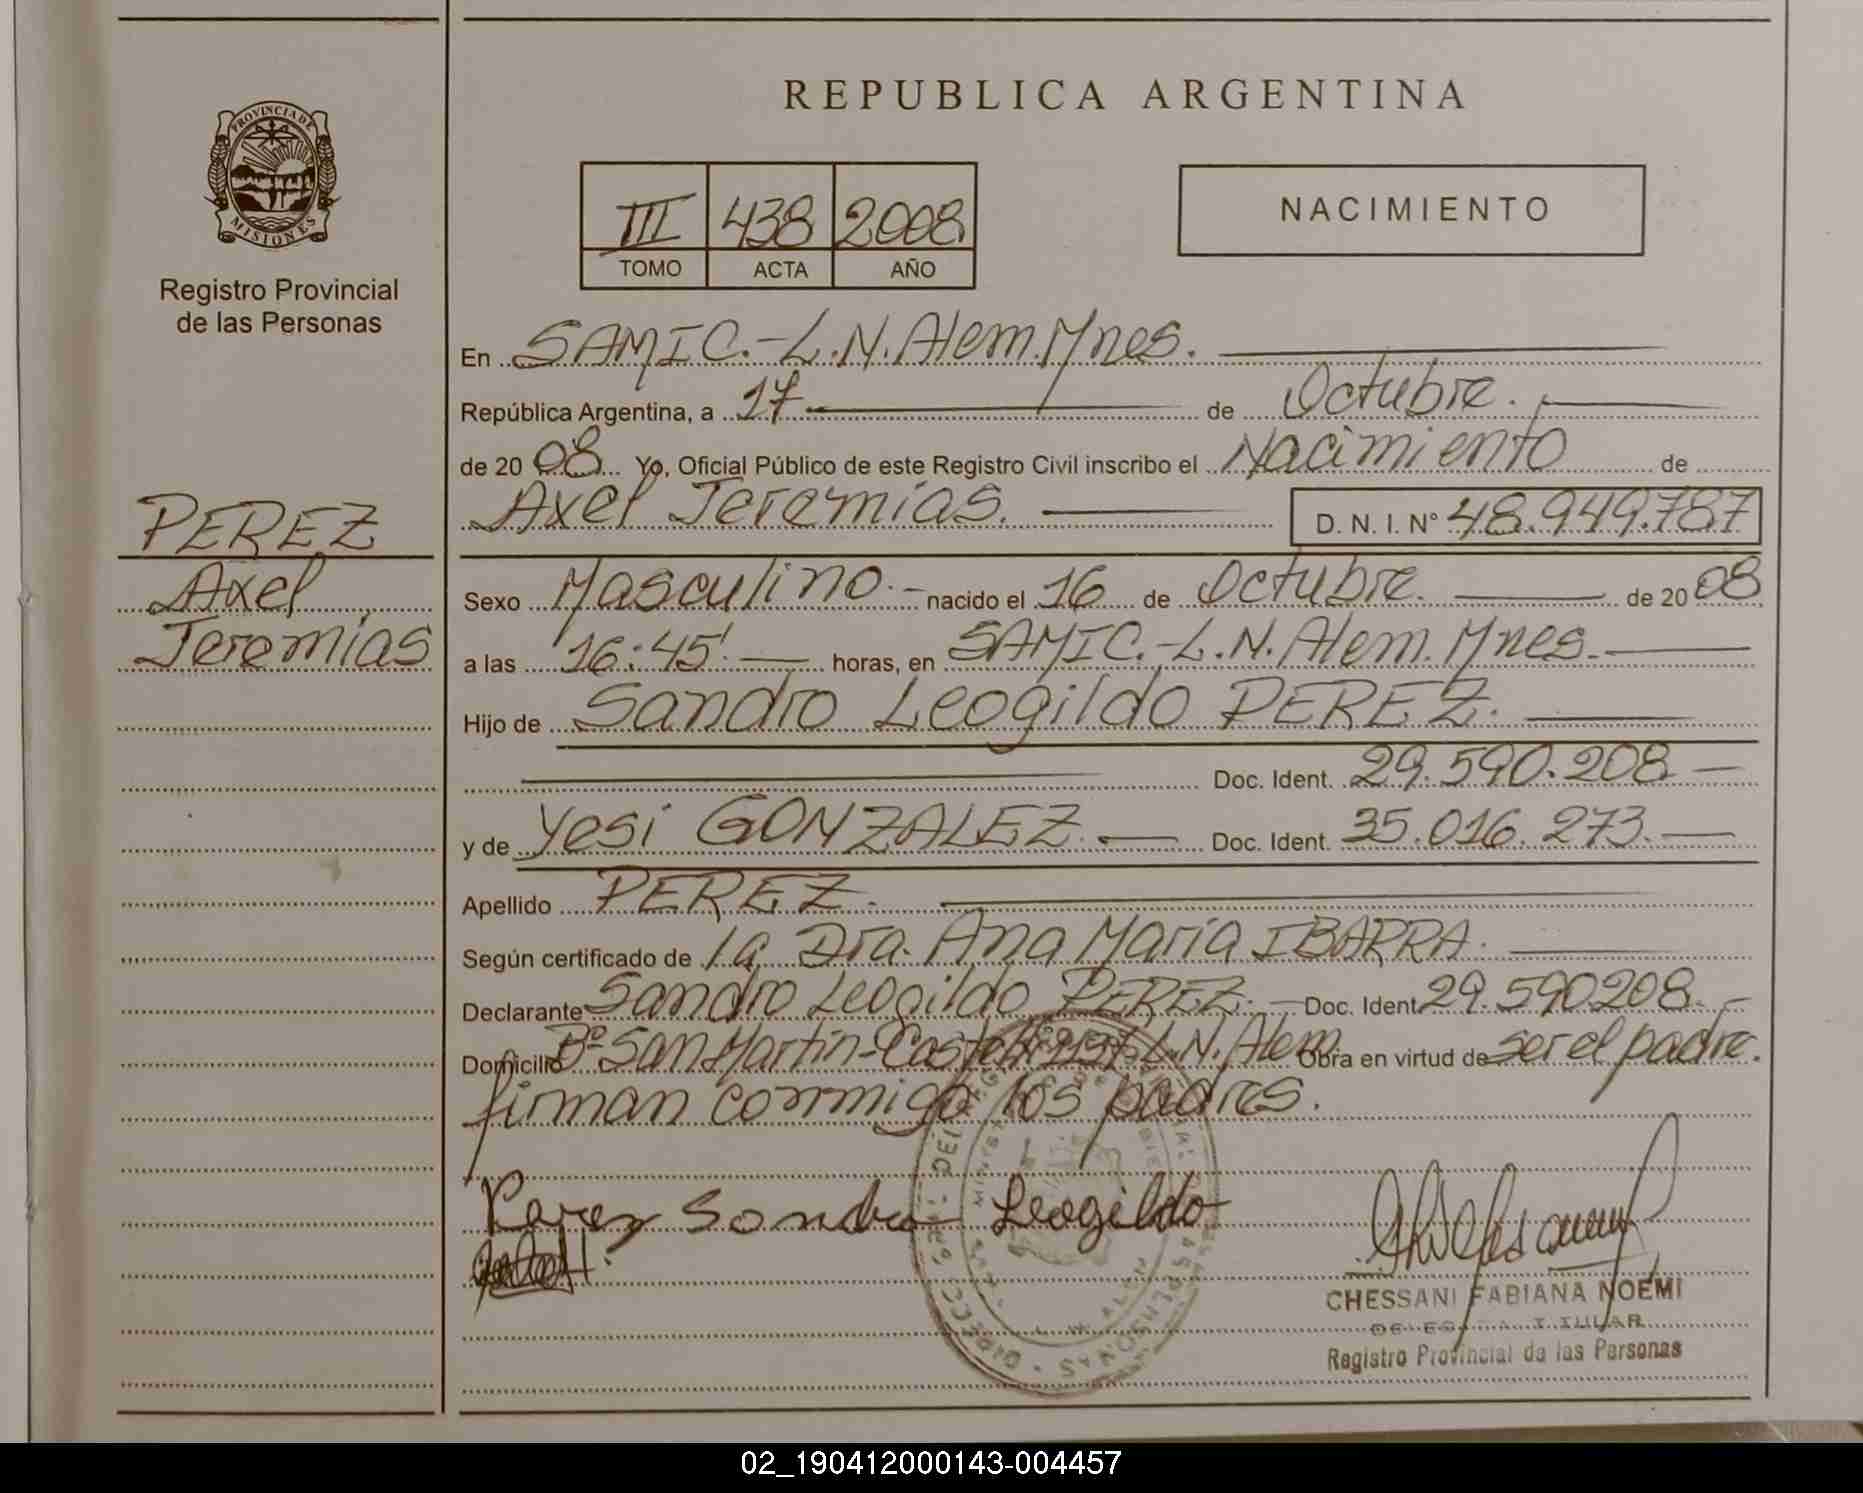 REPUBLICA ARGENTINA
PROVINCIA DE
MISIONES
Registro Provincial
de las Personas
III 438 2008
TOMO ACTA AÑO
NACIMIENTO
En SAMIC.-L.N.Alem.Mnes.
República Argentina, a 17 de Octubre.
de 2008 Yo, Oficial Público de este Registro Civil inscribo el Nacimiento de
Axel Jeremías. D. N. I. N° 48.949.787
PEREZ
Axel
Jeremías
Sexo Masculino.- nacido el 16 de Octubre. de 2008
a las 16:45' horas, en SAMIC.-L.N.Alem.Mnes.
Hijo de Sandro Leogildo PEREZ.
Doc. Ident. 29.590.208
y de Yesi GONZALEZ. Doc. Ident. 35.016.273.
Apellido PEREZ.
Según certificado de la Dra. Ana María IBARRA.
Declarante Sandro Leogildo PEREZ. Doc. Ident. 29.590208.
Domicilio Bº San Martín- L.N.Alem Obra en virtud de ser el padre.
firman conmigo los padres.
Perez Sandro Leogildo
CHESSANI FABIANA NOEMI
TITULAR
Registro Provincial de las Personas
02_190412000143-004457